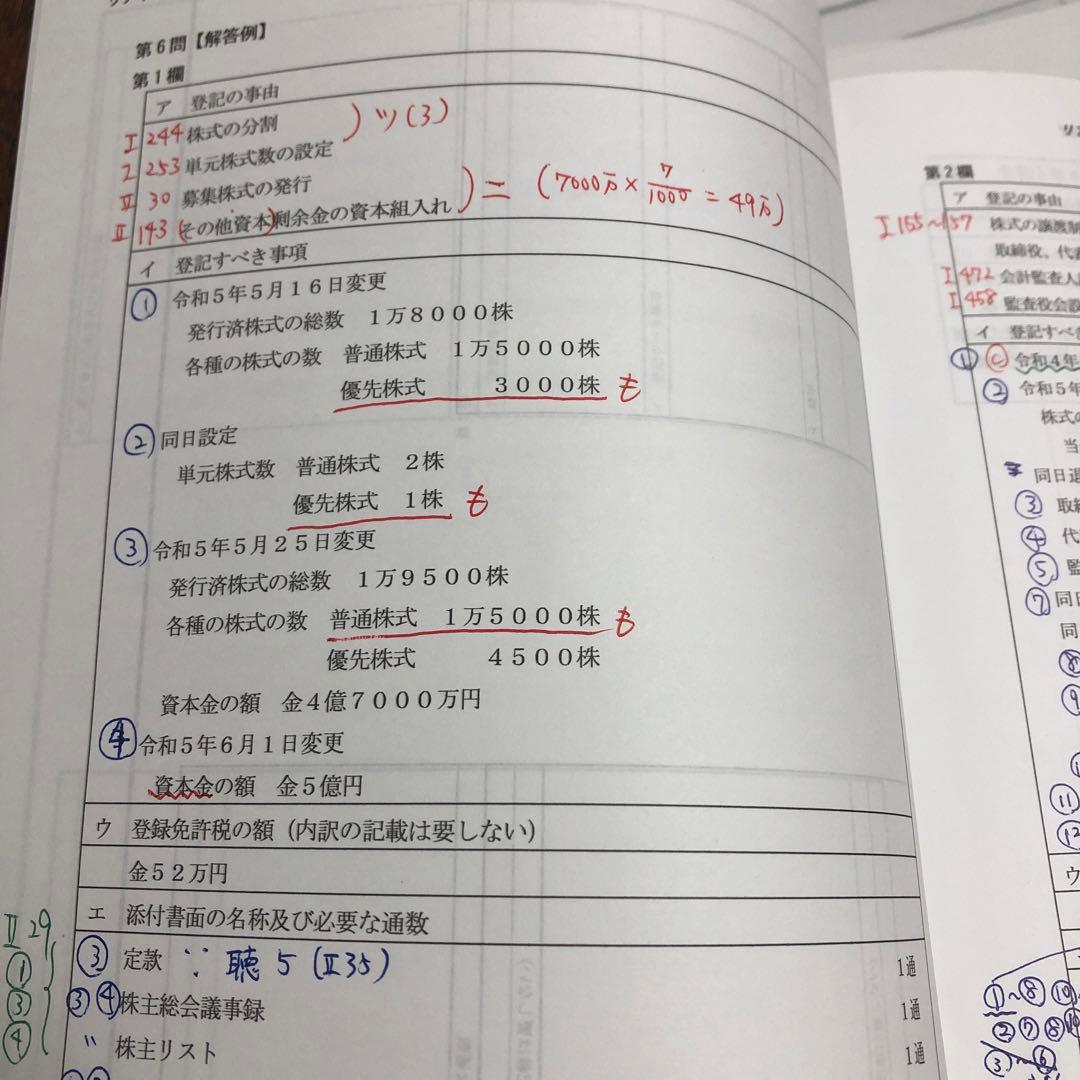 第6問【解答例】
第1欄
ア 登記の事由
I 244 株式の分割 ) ツ(3)
I 253 単元株式数の設定
II 30 募集株式の発行
II 143 (その他資本)剰余金の資本組入れ ) ニ (7000万×7/1000=49万)
イ 登記すべき事項
① 令和5年5月16日変更
発行済株式の総数 1万8000株
各種の株式の数 普通株式 1万5000株
優先株式 3000株 も
② 同日設定
単元株式数 普通株式 2株
優先株式 1株 も
③ 令和5年5月25日変更
発行済株式の総数 1万9500株
各種の株式の数 普通株式 1万5000株 も
優先株式 4500株
資本金の額 金4億7000万円
④ 令和5年6月1日変更
資本金の額 金5億円
ウ 登録免許税の額(内訳の記載は要しない)
金52万円
エ 添付書面の名称及び必要な通数
II 29
①
③
④
③ 定款 ∵ 聴5(II35) 1通
③④ 株主総会議事録 1通
〃 株主リスト 1通
第2欄
ア 登記の事由
I 155~157 株式の譲渡制
取締役、代表
I 472 会計監査人
I 458 監査役会設
イ 登記すべき
① ⓒ 令和4年
② 令和5年
株式の
当
同日退
③ 取締
④ 代
⑤ 監
⑦ 同日
同
⑧
⑨
⑪
⑫
ウ
①~⑧⑩
②⑦⑧
③~⑥